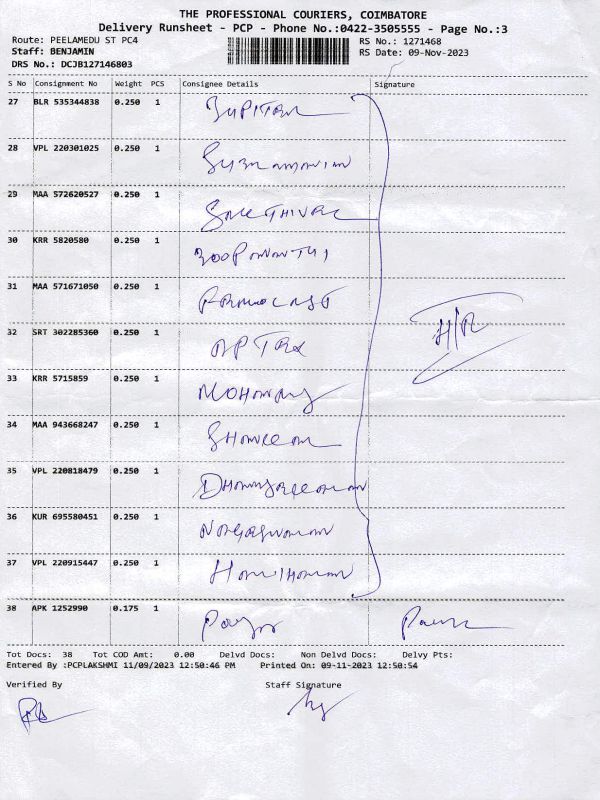 THE PROFESSIONAL COURIERS, COIMBATORE
Delivery Runsheet - PCP - Phone No.:0422-3505555 - Page No.:3
Route: PEELAMEDU ST PC4
RS No.: 1271468
Staff: BENJAMIN
RS Date: 09-Nov-2023
DRS No.: DCJB127146803
S No Consignment No Weight PCS Consignee Details Signature
27 BLR 535344838 0.250 1 JUPITER
28 VPL 220301025 0.250 1 Subramanian
29 MAA 572620527 0.250 1 SAKETHIVEL
30 KRR 5820580 0.250 1
31 MAA 571671050 0.250 1
32 SRT 302285360 0.250 1
H/R
33 KRR 5715859 0.250 1
34 MAA 943668247 0.250 1
35 VPL 220818479 0.250 1
36 KUR 695580451 0.250 1
37 VPL 220915447 0.250 1
38 APK 1252990 0.175 1
Tot Docs: 38 Tot COD Amt: 0.00 Delvd Docs: Non Delvd Docs: Delvy Pts:
Entered By :PCPLAKSHMI 11/09/2023 12:50:46 PM Printed On: 09-11-2023 12:50:54
Verified By Staff Signature